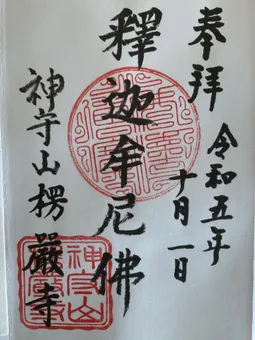 奉拝
令和五年
十月一日
釋迦牟尼佛
神守山楞嚴寺
神守山